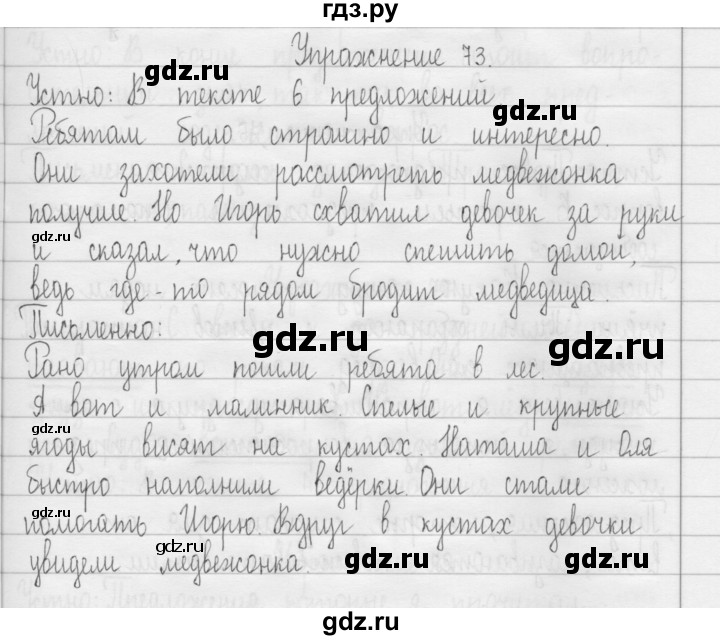 гдз.ру
Упражнение 73.
gdz.ru
Устно: В тексте 6 предложений
gdz.ru
Ребятам было страшно и интересно.
Они захотели рассмотреть медвежонка
получше. Но Игорь схватил девочек за руки
gdz.ru
и сказал, что нужно спешить домой,
ведь где-то рядом бродит медведица.
Письменно:
gdz.ru
gdz.ru
Рано утром пошли ребята в лес.
А вот и малинник. Спелые и крупные
gdz.ru
ягоды висят на кустах. Наташа и Оля
быстро наполнили ведёрки. Они стали
помогать Игорю. Вдруг в кустах девочки
gdz.ru
увидели медвежонка.
gdz.ru
gdz.ru
gdz.ru